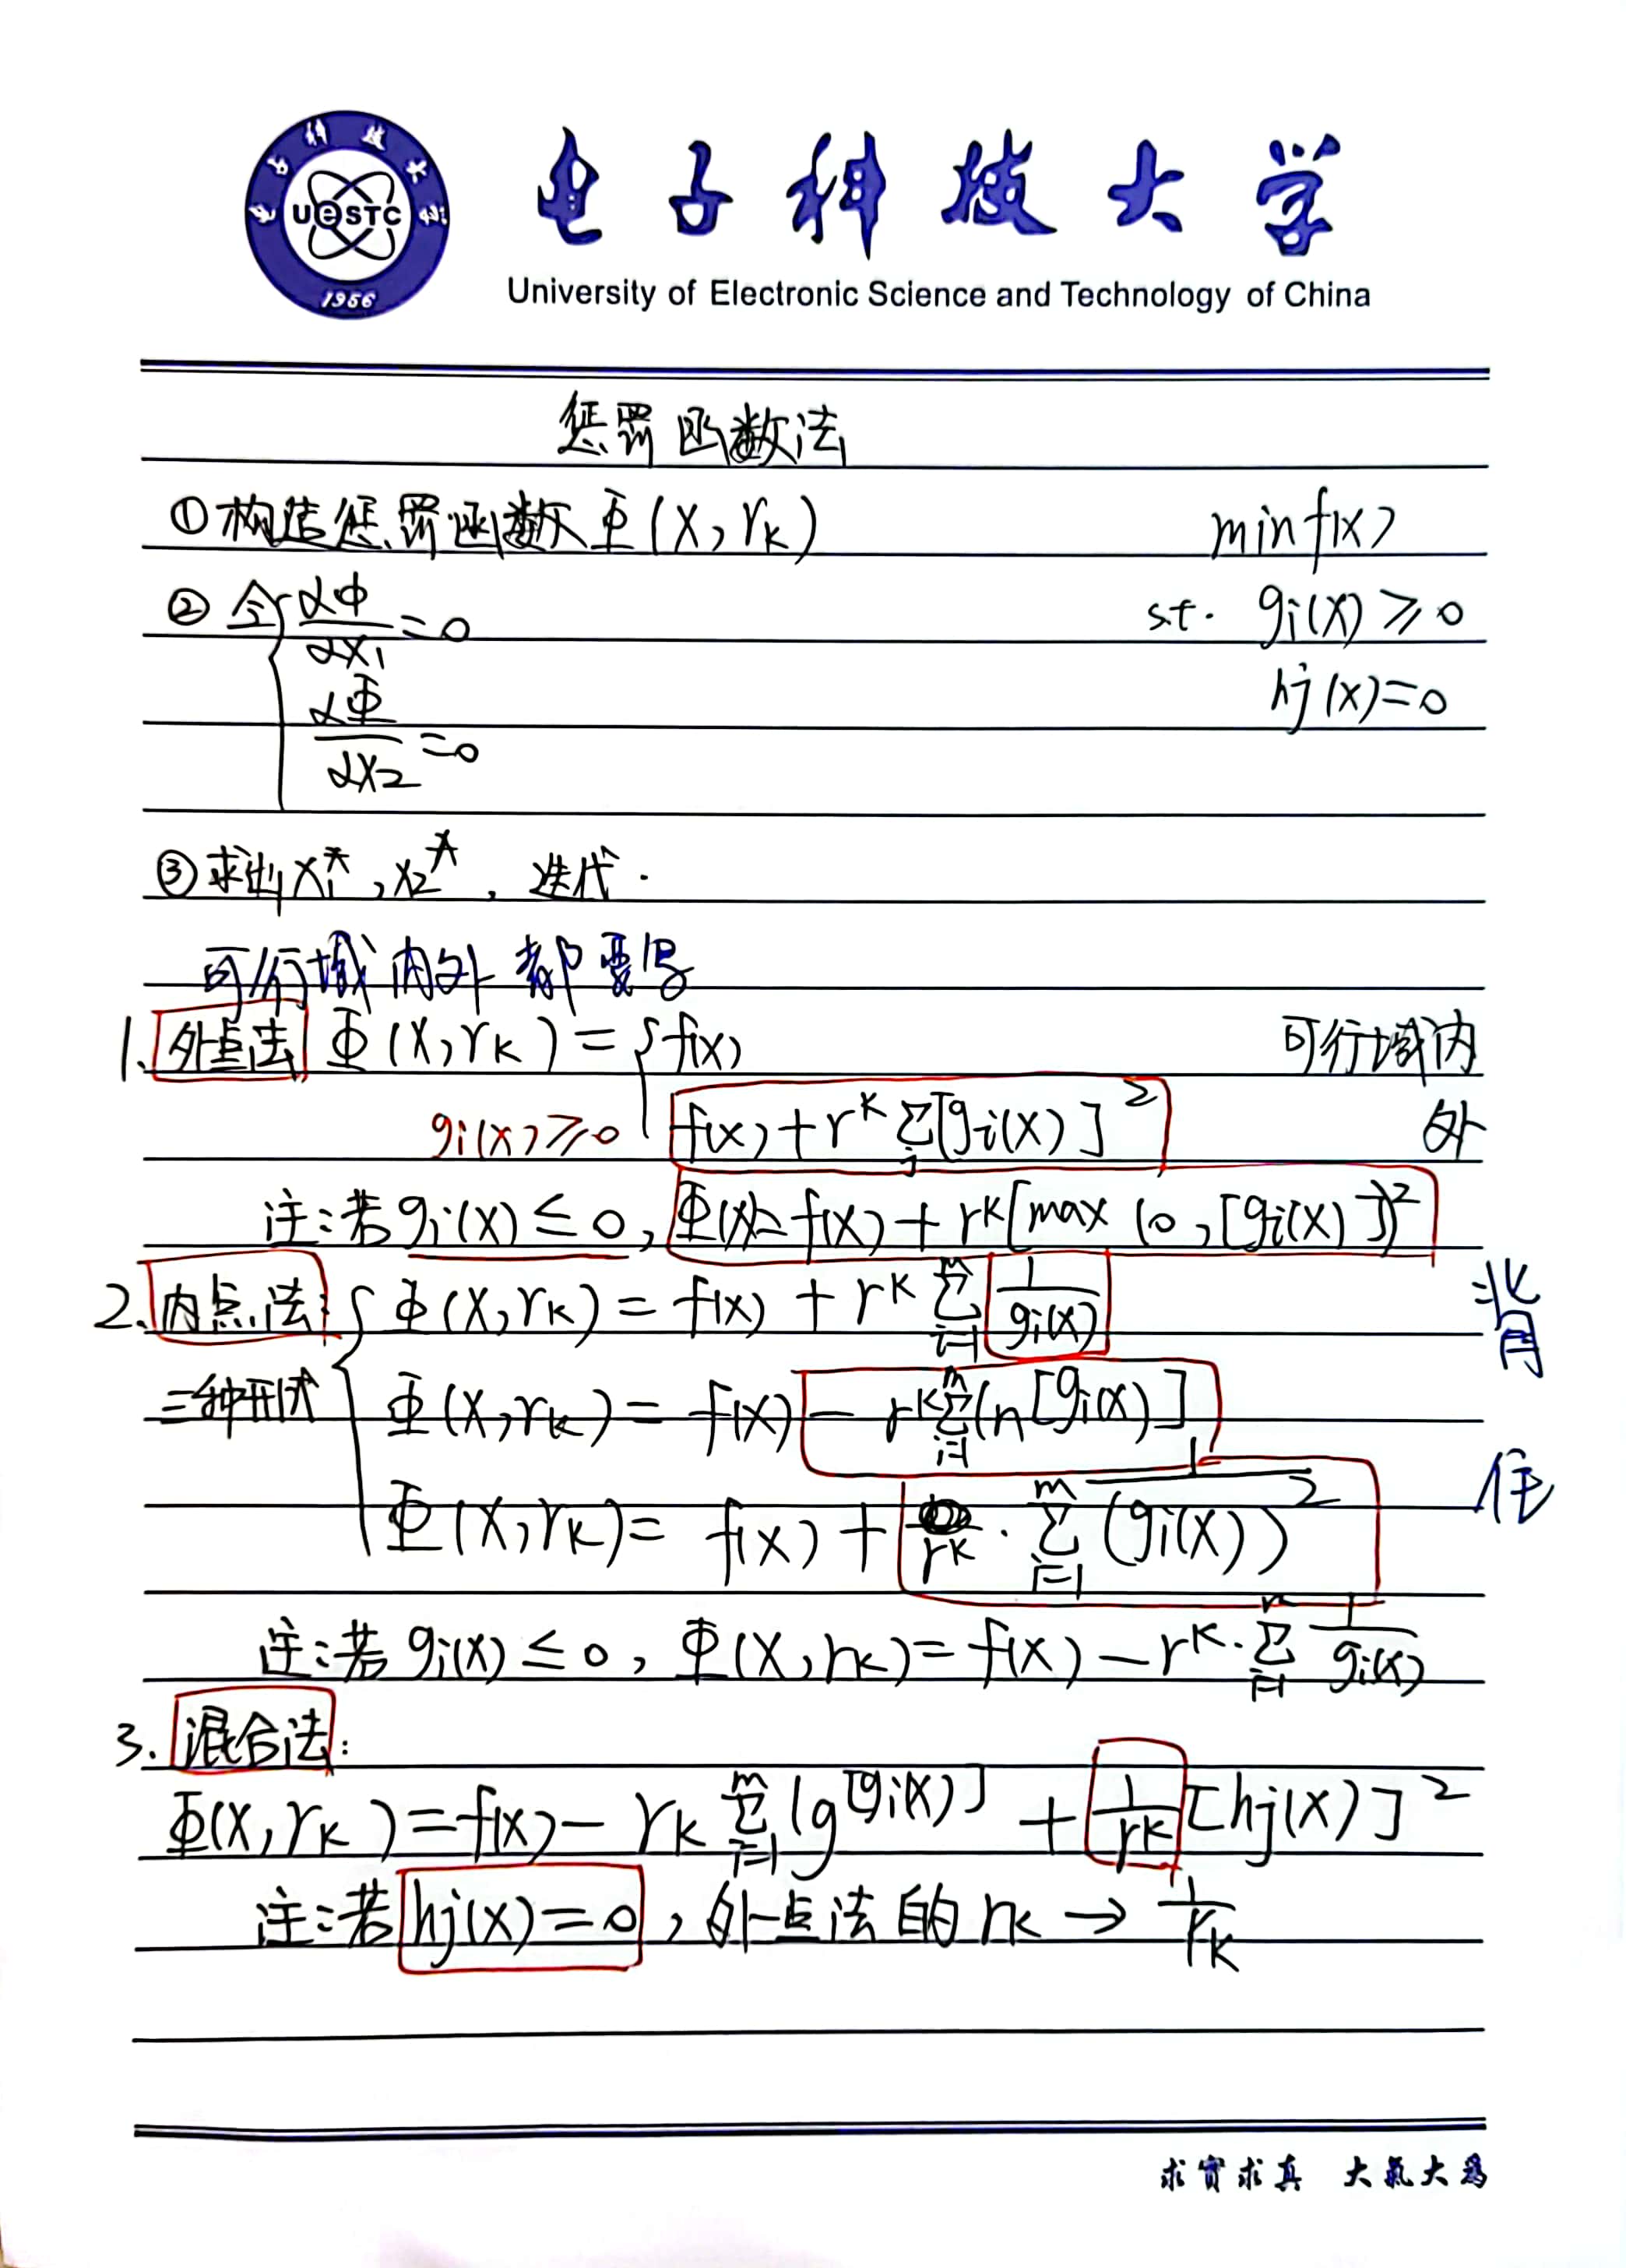 电子科技大学
UeSTC
1956
University of Electronic Science and Technology of China
惩罚函数法
①构造惩罚函数 Φ(X, rk) min f(x)
②令 { ∂Φ/∂X1 = 0 s.t. gi(X) ≥ 0
∂Φ/∂X2 = 0 hj(x) = 0
③求出 X1*, X2*, 迭代.
可行域内外都要写
1. 外点法 Φ(X, rk) = { f(x) 可行域内
gi(x) ≥ 0 f(x) + r^k Σ[gi(X)]^2 外
注:若 gi(X) ≤ 0, Φ(X) = f(X) + r^k[max(0, [gi(X)])^2
2. 内点法: { Φ(X, rk) = f(x) + r^k Σ_{i=1}^{m} 1/gi(X)
三种形式 Φ(X, rk) = f(X) - r^k Σ_{i=1}^{m} ln[gi(X)]
Φ(X, rk) = f(X) + r^k · Σ_{i=1}^{m} 1/(gi(X))^2
背住
注:若 gi(X) ≤ 0, Φ(X, rk) = f(X) - r^k · Σ_{i=1}^{m} 1/gi(X)
3. 混合法:
Φ(X, rk) = f(x) - rk Σ_{i=1}^{m} lg[gi(X)] + 1/r^k [hj(X)]^2
注:若 hj(X) = 0, 外点法的 rk → 1/rk
求实求真 大气大为